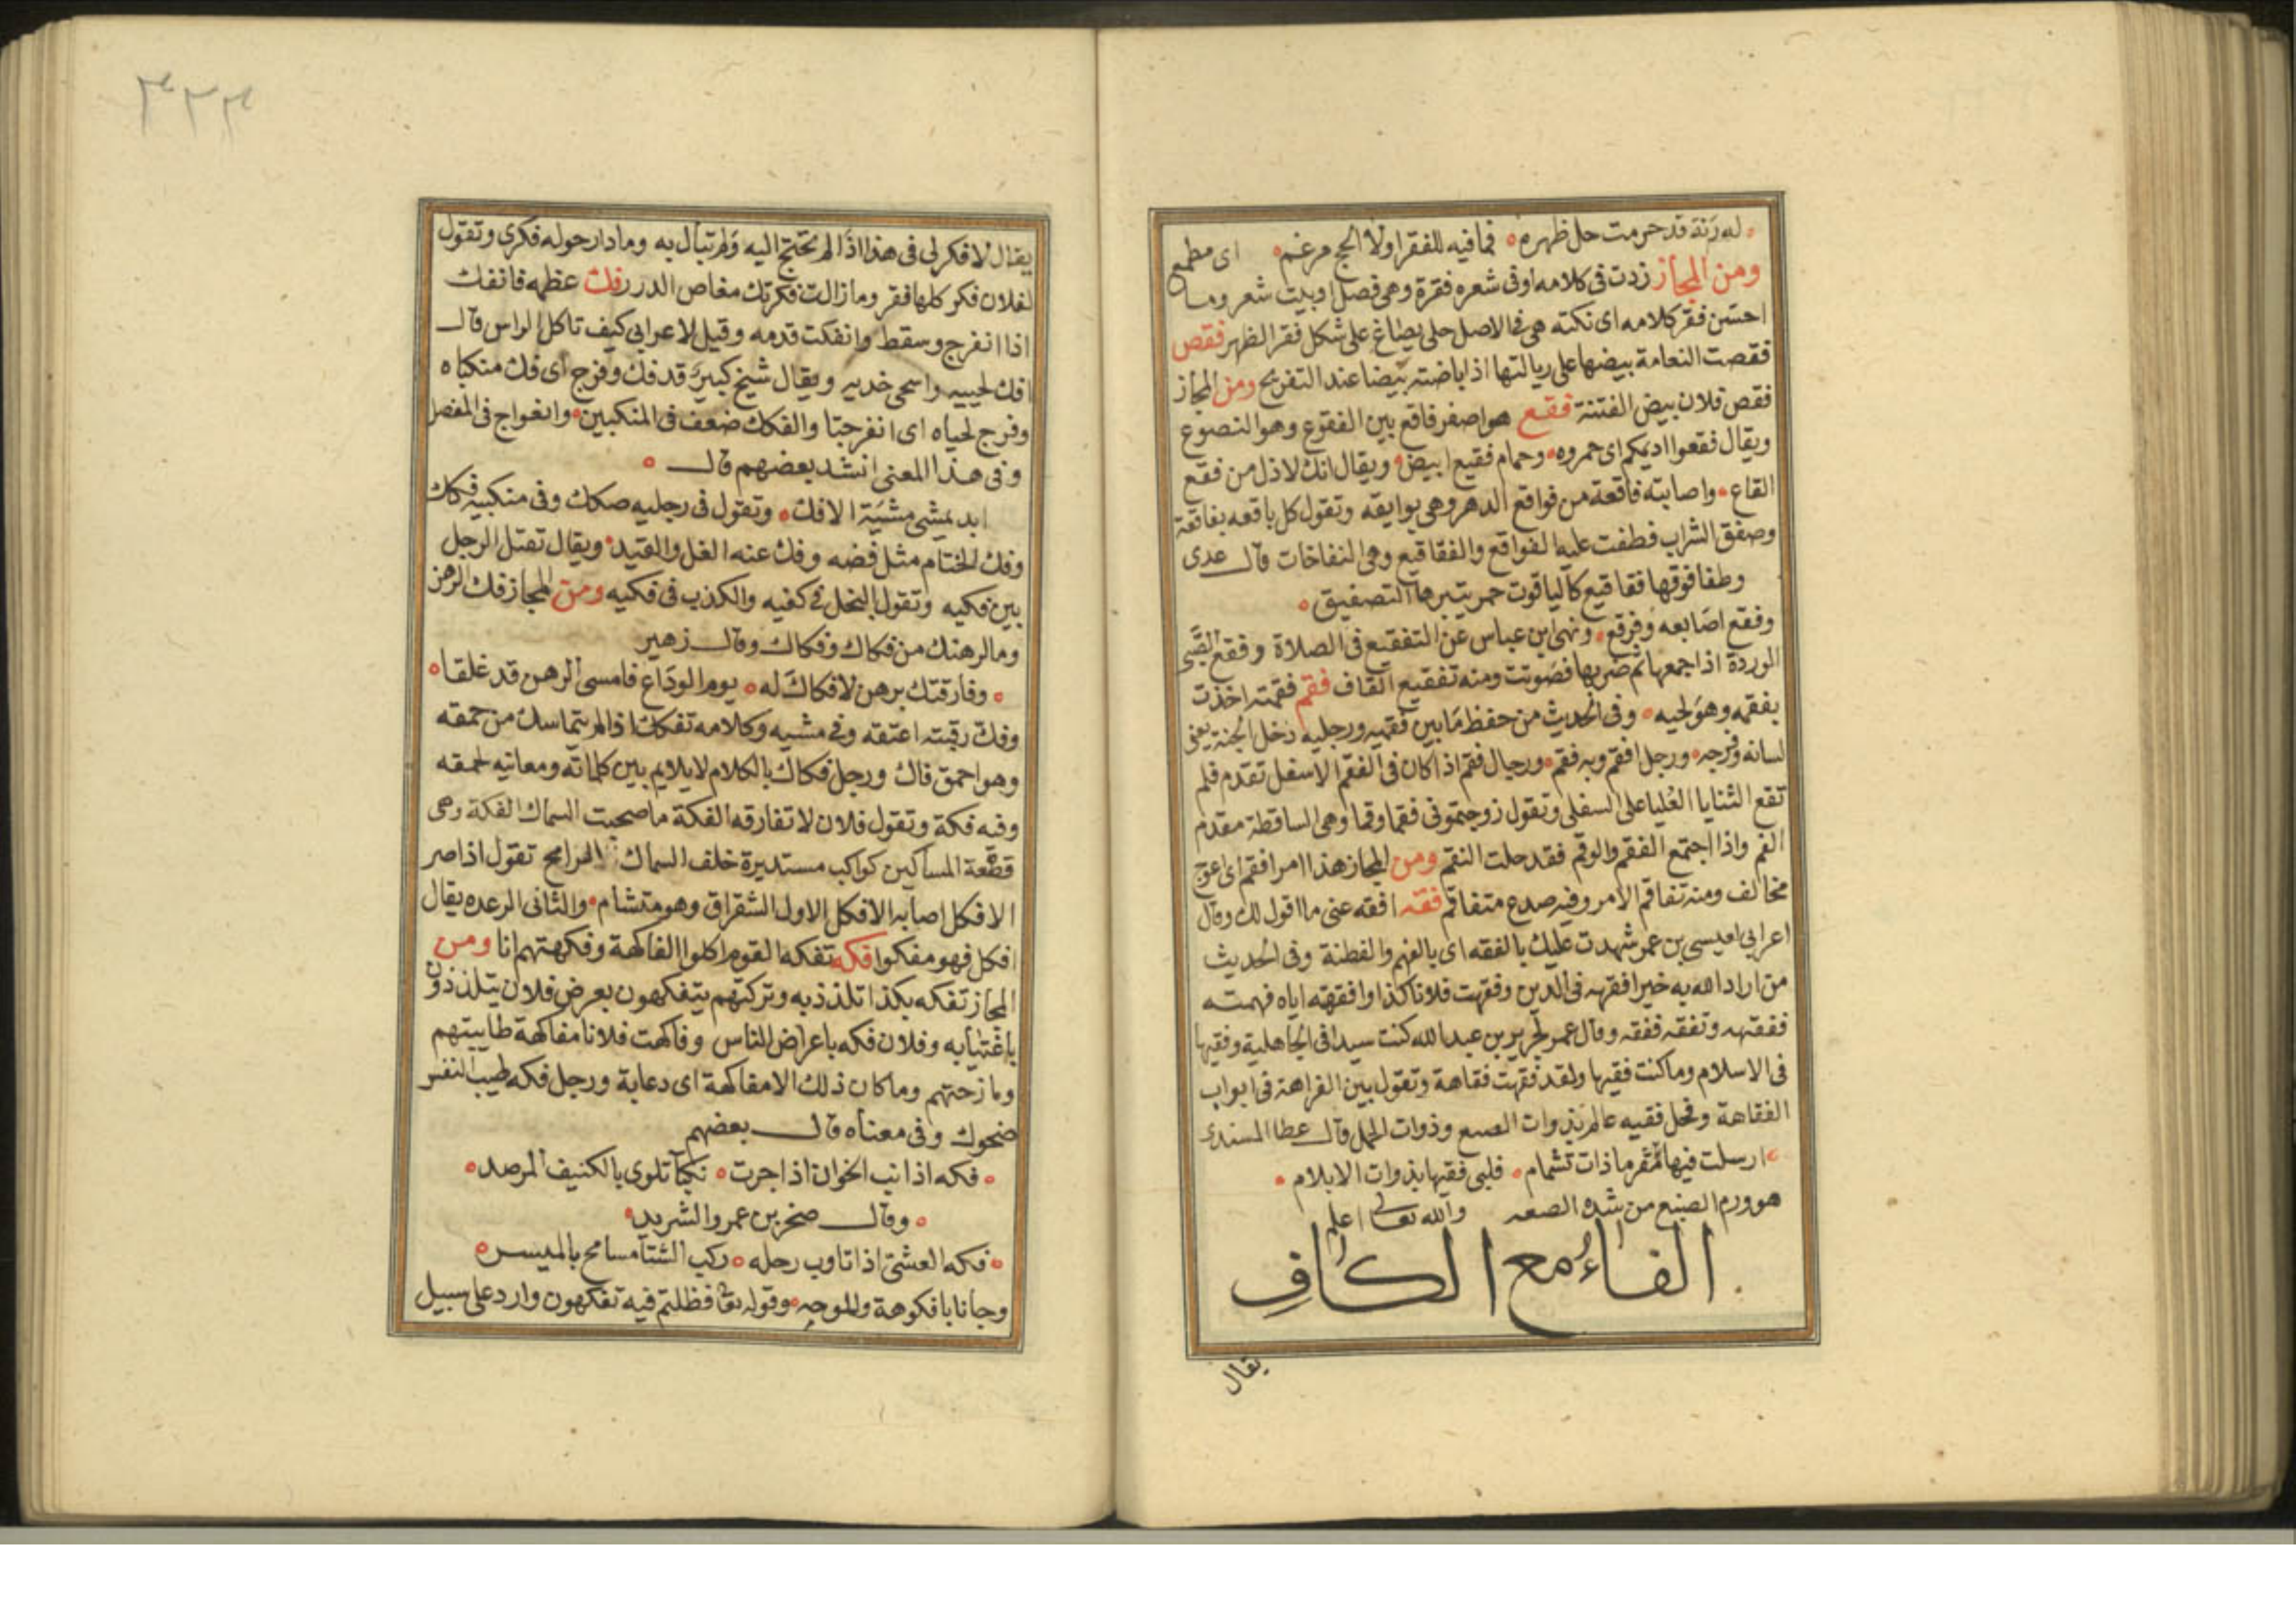 له رنة قد حرمت حل ظهره فما فيه للفقرا ولا الحج مزعم اى مطمع
ومن المجاز زدت فى كلامه او فى شعره فقرة وهى فصل او بيت شعر وما
احسن فقر كلامه اى نكته هى فى الاصل حلى يصاغ على شكل فقر الظهر فقص
فقصت النعامة بيضها على ريالتها اذا باضته بيضا عند التفريخ ومن المجاز
فقص فلان بيض الفتنة فقع هو اصفر فاقع بين الفقوع وهو النصوع
ويقال فقعوا اديمكم اى حمروه وحمام فقيع ابيض ويقال انك لاذل من فقع
القاع واصابته فاقعة من فواقع الدهر وهى بوايقه وتقول كل باقعه بفاقعة
وصفق الشراب فطفت عليه الفواقع والفقاقيع وهى النفاخات قال عدى
وطفا فوقها فقاقيع كالياقوت حمر يثيرها التصفيق
وفقع اصابعه وفرقع ونهى ابن عباس عن التفقيع فى الصلاة وفقع الصبى
الوردة اذا جمعها ثم ضربها فصوتت ومنه تفقيع القاف فقم فقمته اخذت
بفقمه وهو لحيه وفى الحديث من حفظ ما بين فقميه ورجليه دخل الجنة يعنى
لسانه وفرجه ورجل افقم وبه فقم ورجال فقم اذا كان فى الفقم الاسفل تقدم فلم
تقع الثنايا العليا على السفلى وتقول زوجتمونى فقما وقما وهى الساقطة مقدم
الفم واذا اجتمع الفقم والوقم فقد حلت النقم ومن المجاز هذا امر افقم اى اعوج
مخالف ومنه تفاقم الامر وفيه صدع متفاقم فقه افقه عنى ما اقول لك وقال
اعرابى لعيسى بن عمر شهدت عليك بالفقه اى بالفهم والفطنة وفى الحديث
من اراد الله به خيرا فقهه فى الدين وفقهت فلانا كذا وافقهته اياه فهمته
ففقهه وتفقه ففقه وقال عمر لجرير بن عبد الله كنت سيدا فى الجاهلية وفقيها
فى الاسلام وما كنت فقيها ولقد فقهت فقاهة وتقول بين الفراهة فى ابواب
الفقاهة وفحل فقيه عالم بذوات الضبع وذوات الحمل قال عطا السندى
ارسلت فيها مقرما ذات تشمام فلبى فقيها بذوات الابلام
هو ورم الضبع من شدة الضبعه والله تعالى اعلم
الفاء مع الكاف
يقال
٣٢٣
يقال لا فكر لى فى هذا اذا لم تحتج اليه ولم تبال به وما دار حوله فكرى وتقول
لفلان فكر كلها فقر وما زالت فكرتك مغاص الدرر فك عظمه فانفك
اذا انفرج وسقط وانفكت قدمه وقيل لاعرابى كيف تاكل الراس قال
افك لحييه واسحى خديه ويقال شيخ كبير قد فك وفرج اى فك منكباه
وفرج لحياه اى انفرجتا والفكك ضعف فى المنكبين وانفراج فى المفصل
وفى هذا المعنى انشد بعضهم قال
ابد يمشى مشية الافك وتقول فى رجليه صكك وفى منكبيه فكك
وفك الختام مثل فضه وفك عنه الغل والقيد ويقال تقتل الرجل
بين فكيه وتقول البخل فى كفيه والكذب فى فكيه ومن المجاز فك الرهن
وما لرهنك من فكاك وفكاك وقال زهير
وفارقتك برهن لا فكاك له يوم الوداع فامسى الرهن قد غلقا
وفك رقبته اعتقه وفى مشيه وكلامه تفكك اذا لم يتماسك من حمقه
وهو احمق فاك ورجل فكاك بالكلام لا يلايم بين كلماته ومعانيه لحمقه
وفيه فكة وتقول فلان لا تفارقه الفكة ما صحبت السماك الفكة وهى
قصعة المساكين كواكب مستديرة خلف السماك الرامح تقول اذا صر
الافكل اصابه الافكل الاول الشقراق وهو متشام والثانى الرعده يقال
افكل فهو مفكوا فكه تفكه القوم اكلوا الفاكهة وفكهتهم انا ومن
المجاز تفكه بكذا تلذذ به وتركتهم يتفكهون بعرض فلان يتلذذون
باغتيابه وفلان فكه باعراض الناس وفاكهت فلانا مفاكهة طايبتهم
ومازحتهم وما كان ذلك الا مفاكهة اى دعابة ورجل فكه طيب النفس
ضحوك وفى معناه قال بعضهم
فكه اذا نب الخوان اذا جرت نكبا تلوى بالكنيف المرصد
وقال صخر بن عمرو الشريد
فكه العشى اذا تاوب رحله ركب الشتا مسامح بالميسر
وجانا بافكوهة واملوحه وقوله تعالى فظلتم فيه تفكهون وارد على سبيل